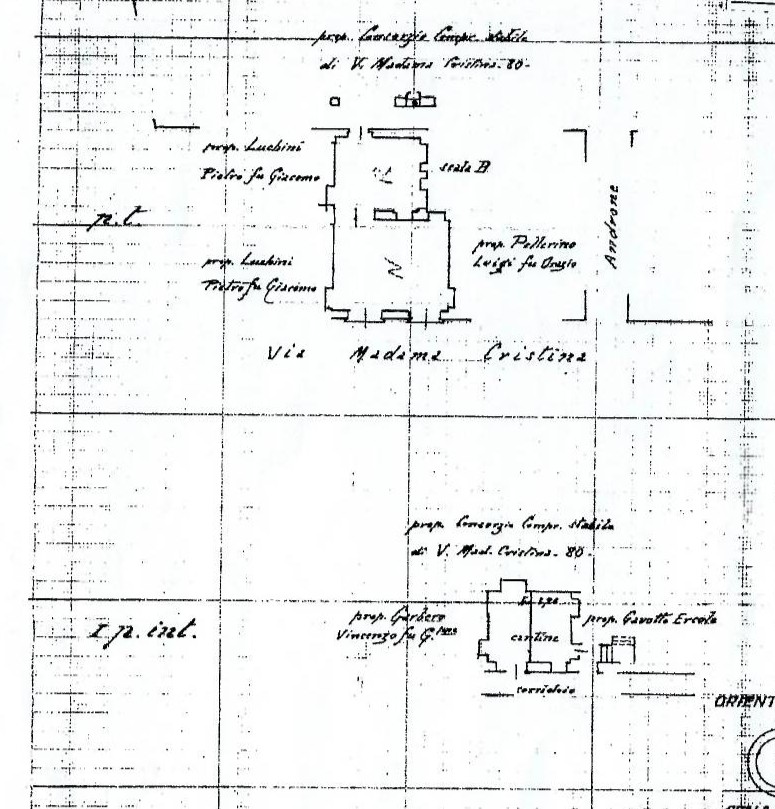 prop. Consorzio Compr. stabile
di V. Madama Cristina - 80 -
prop. Luchini
Pietro fu Giacomo
R
scala B
p.t.
prop. Luchini
Pietro fu Giacomo
N
prop. Pellerino
Luigi fu Orazio
Androne
Via Madama Cristina
prop. Consorzio Compr. stabile
di V. Mad. Cristina - 80 -
I p. int.
prop. Garbero
Vincenzo fu G.
1,20
cantine
prop. Gavotto Ercole
corridoio
ORIENT